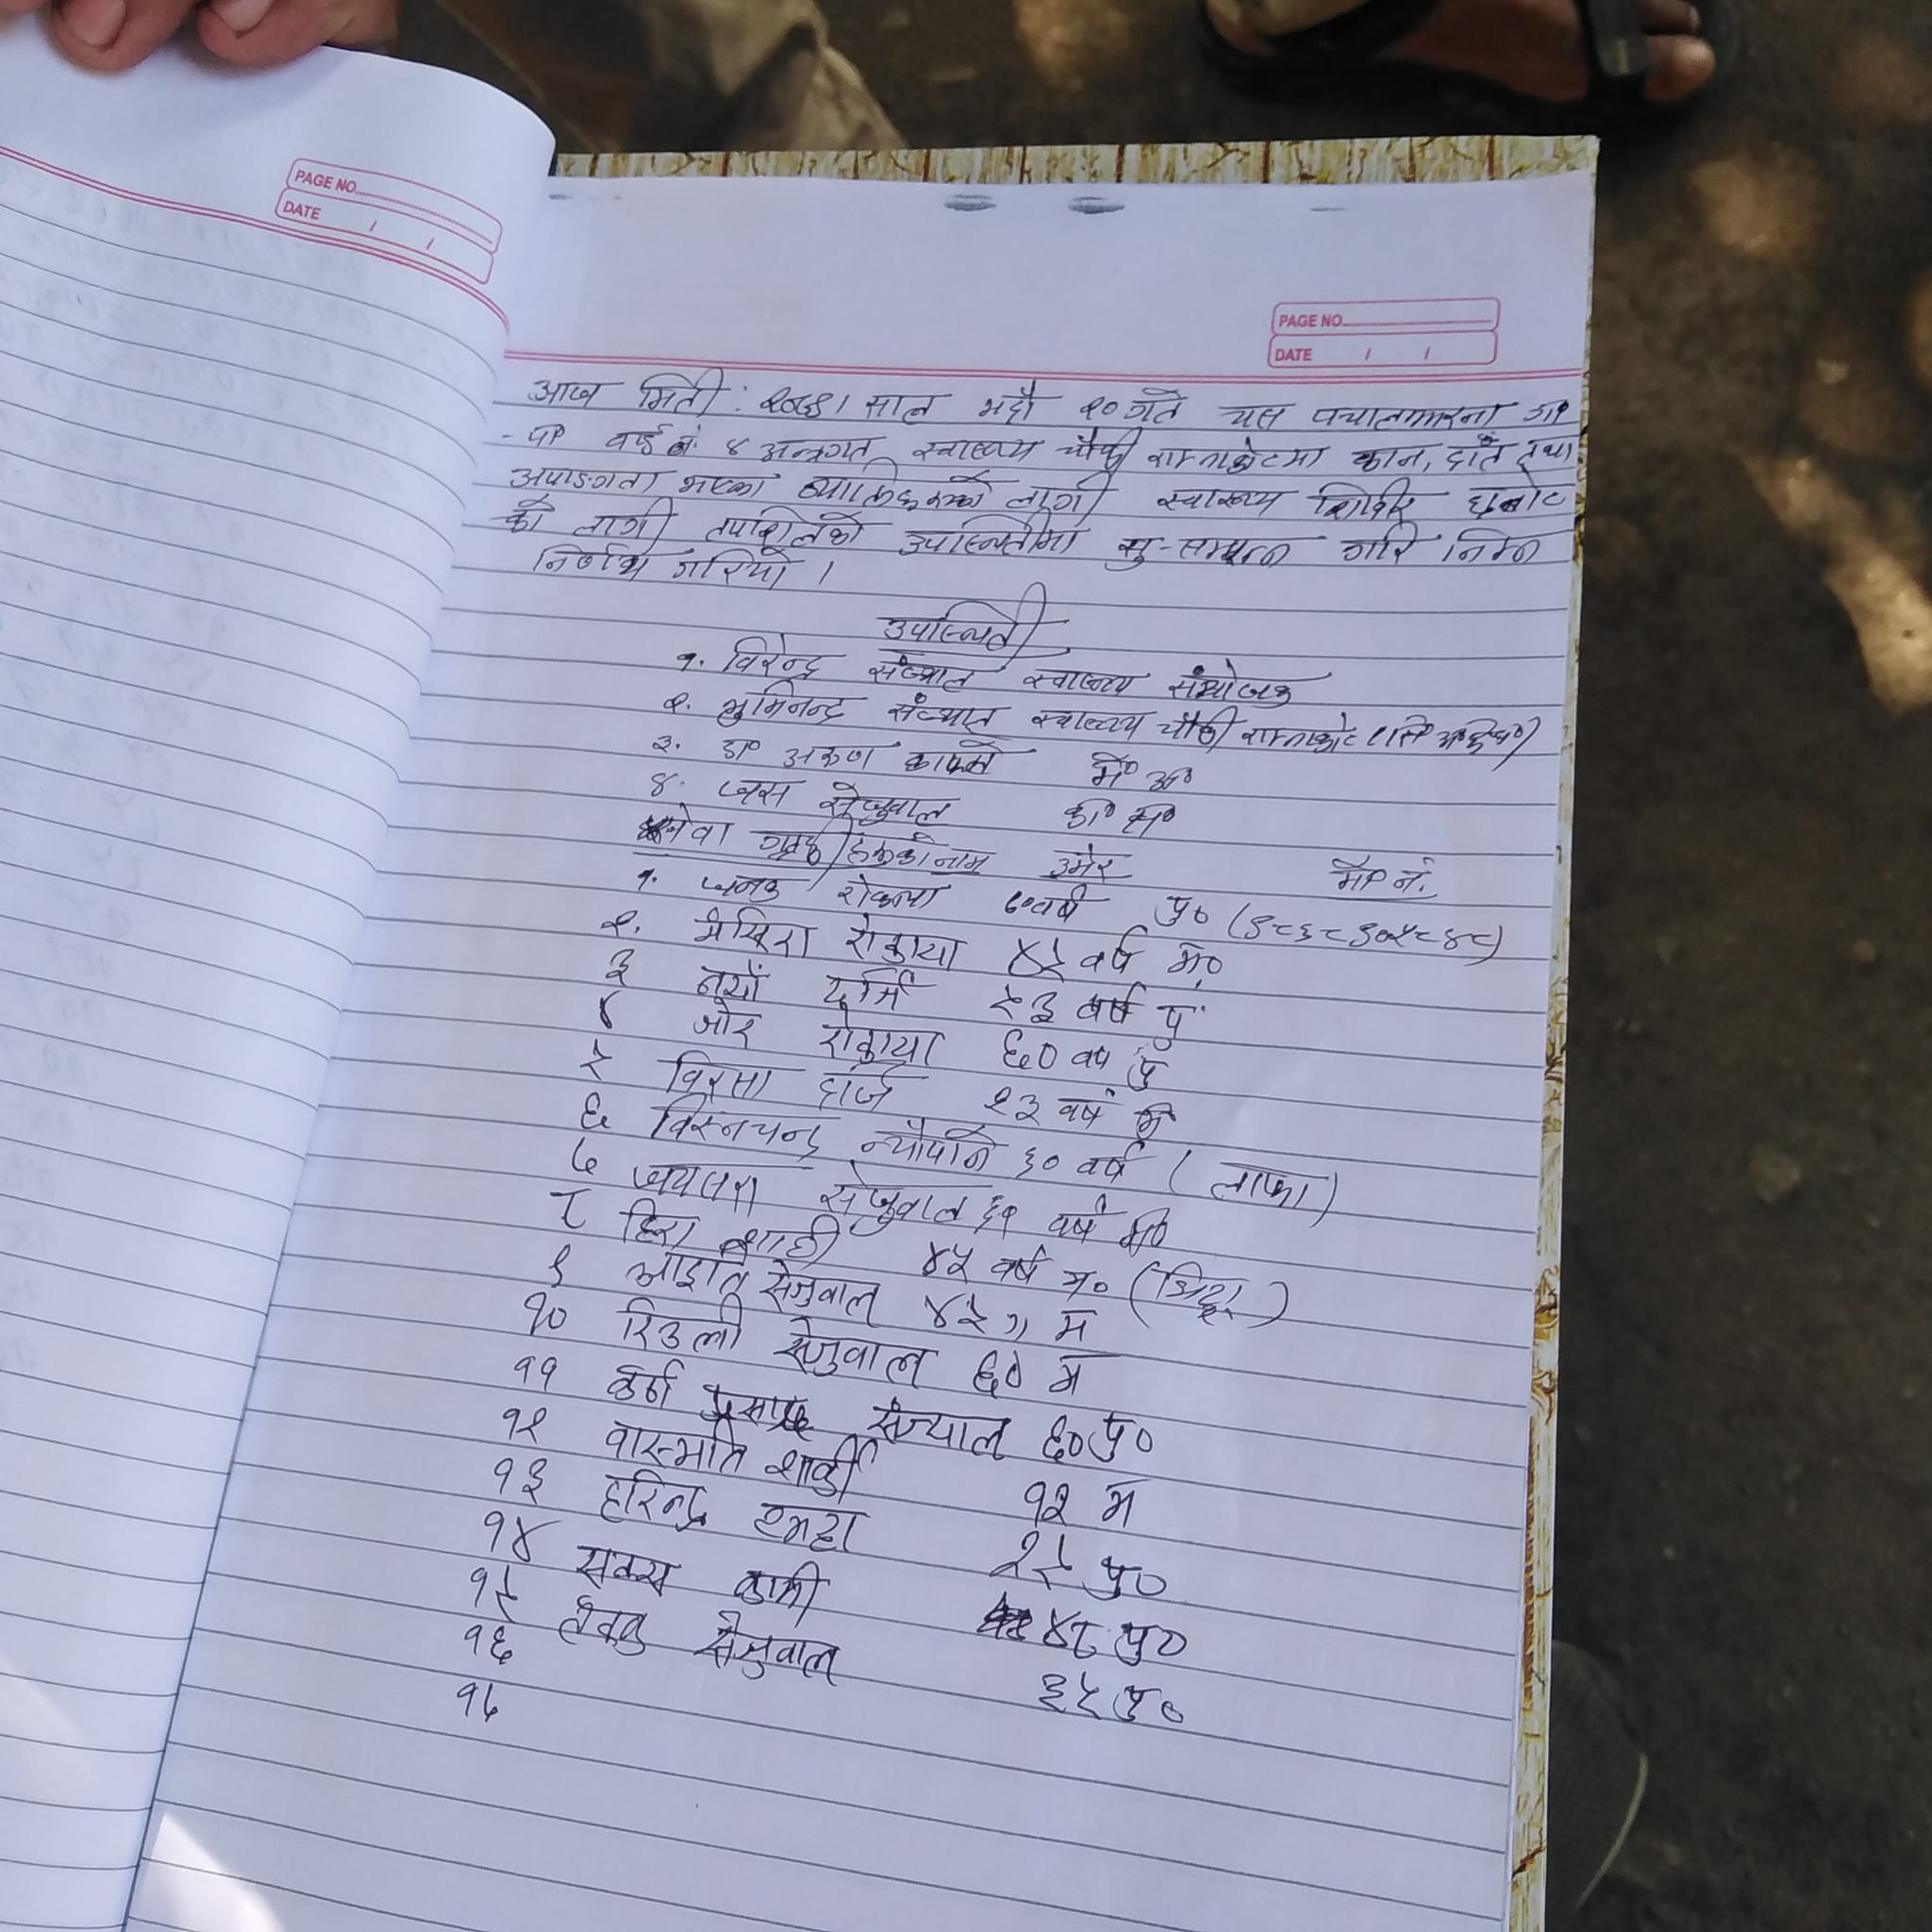 PAGE NO.
DATE / /
PAGE NO.
DATE / /
आज मिती : २०८१ साल भदौ २० गते यस पचालझरना गा०
पा० वार्ड नं ४ अन्त्रगत स्वास्थ्य चौकी रामनाकोटमा कान, दाँत तथा
अपाङगता भएका ब्यक्तिहरूको लागी स्वास्थ्य शिविर छनोट
को लागी तपशिलको उपस्थितीमा सु-सम्पन्न गरि निम्न
निर्णय गरियो ।
उपस्थिती
१. विरेन्द्र संज्याल स्वास्थ्य संयोजक
२. भुमिनन्द्र संज्याल स्वास्थ्य चौकी रामनाकोट
३. डा० अरुण काफ्ले मे० अ०
४. जस सेजुवाल का० स०
सेवा ग्राही हरूको नाम उमेर मो० नं.
१. जनक रोकाया ७० वर्ष पु० (९८६८९०५८४८)
२. मखिरा रोकाया ४५ वर्ष म०
३ नयाँ दर्जि ५३ वर्ष पु
४ जोर रोकाया ६० वर्ष पु
५ विरमा दर्जि २३ वर्ष म
६ विस्नचन्द्र न्यौपाने ६० वर्ष ( लाफा )
७ जयलरा सेजुवाल ६१ वर्ष म०
८ हिरा शाही ४५ वर्ष म०
९ आइति सेजुवाल ४५ ग म
१० रिउली सेजुवाल ६० म
११ कर्ण प्रसाद संज्याल ६० पु०
१२ वास्मति शार्की १२ म
१३ हरिन्द्र २५ पु०
१४ सक्स कामी ४८ पु०
१५ सेजुवाल ३५ पु०
१६
१७